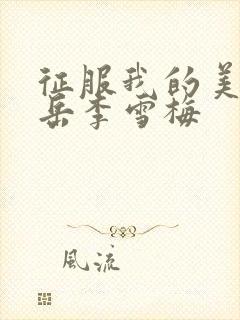 征服我的美
岳李雪梅
風流